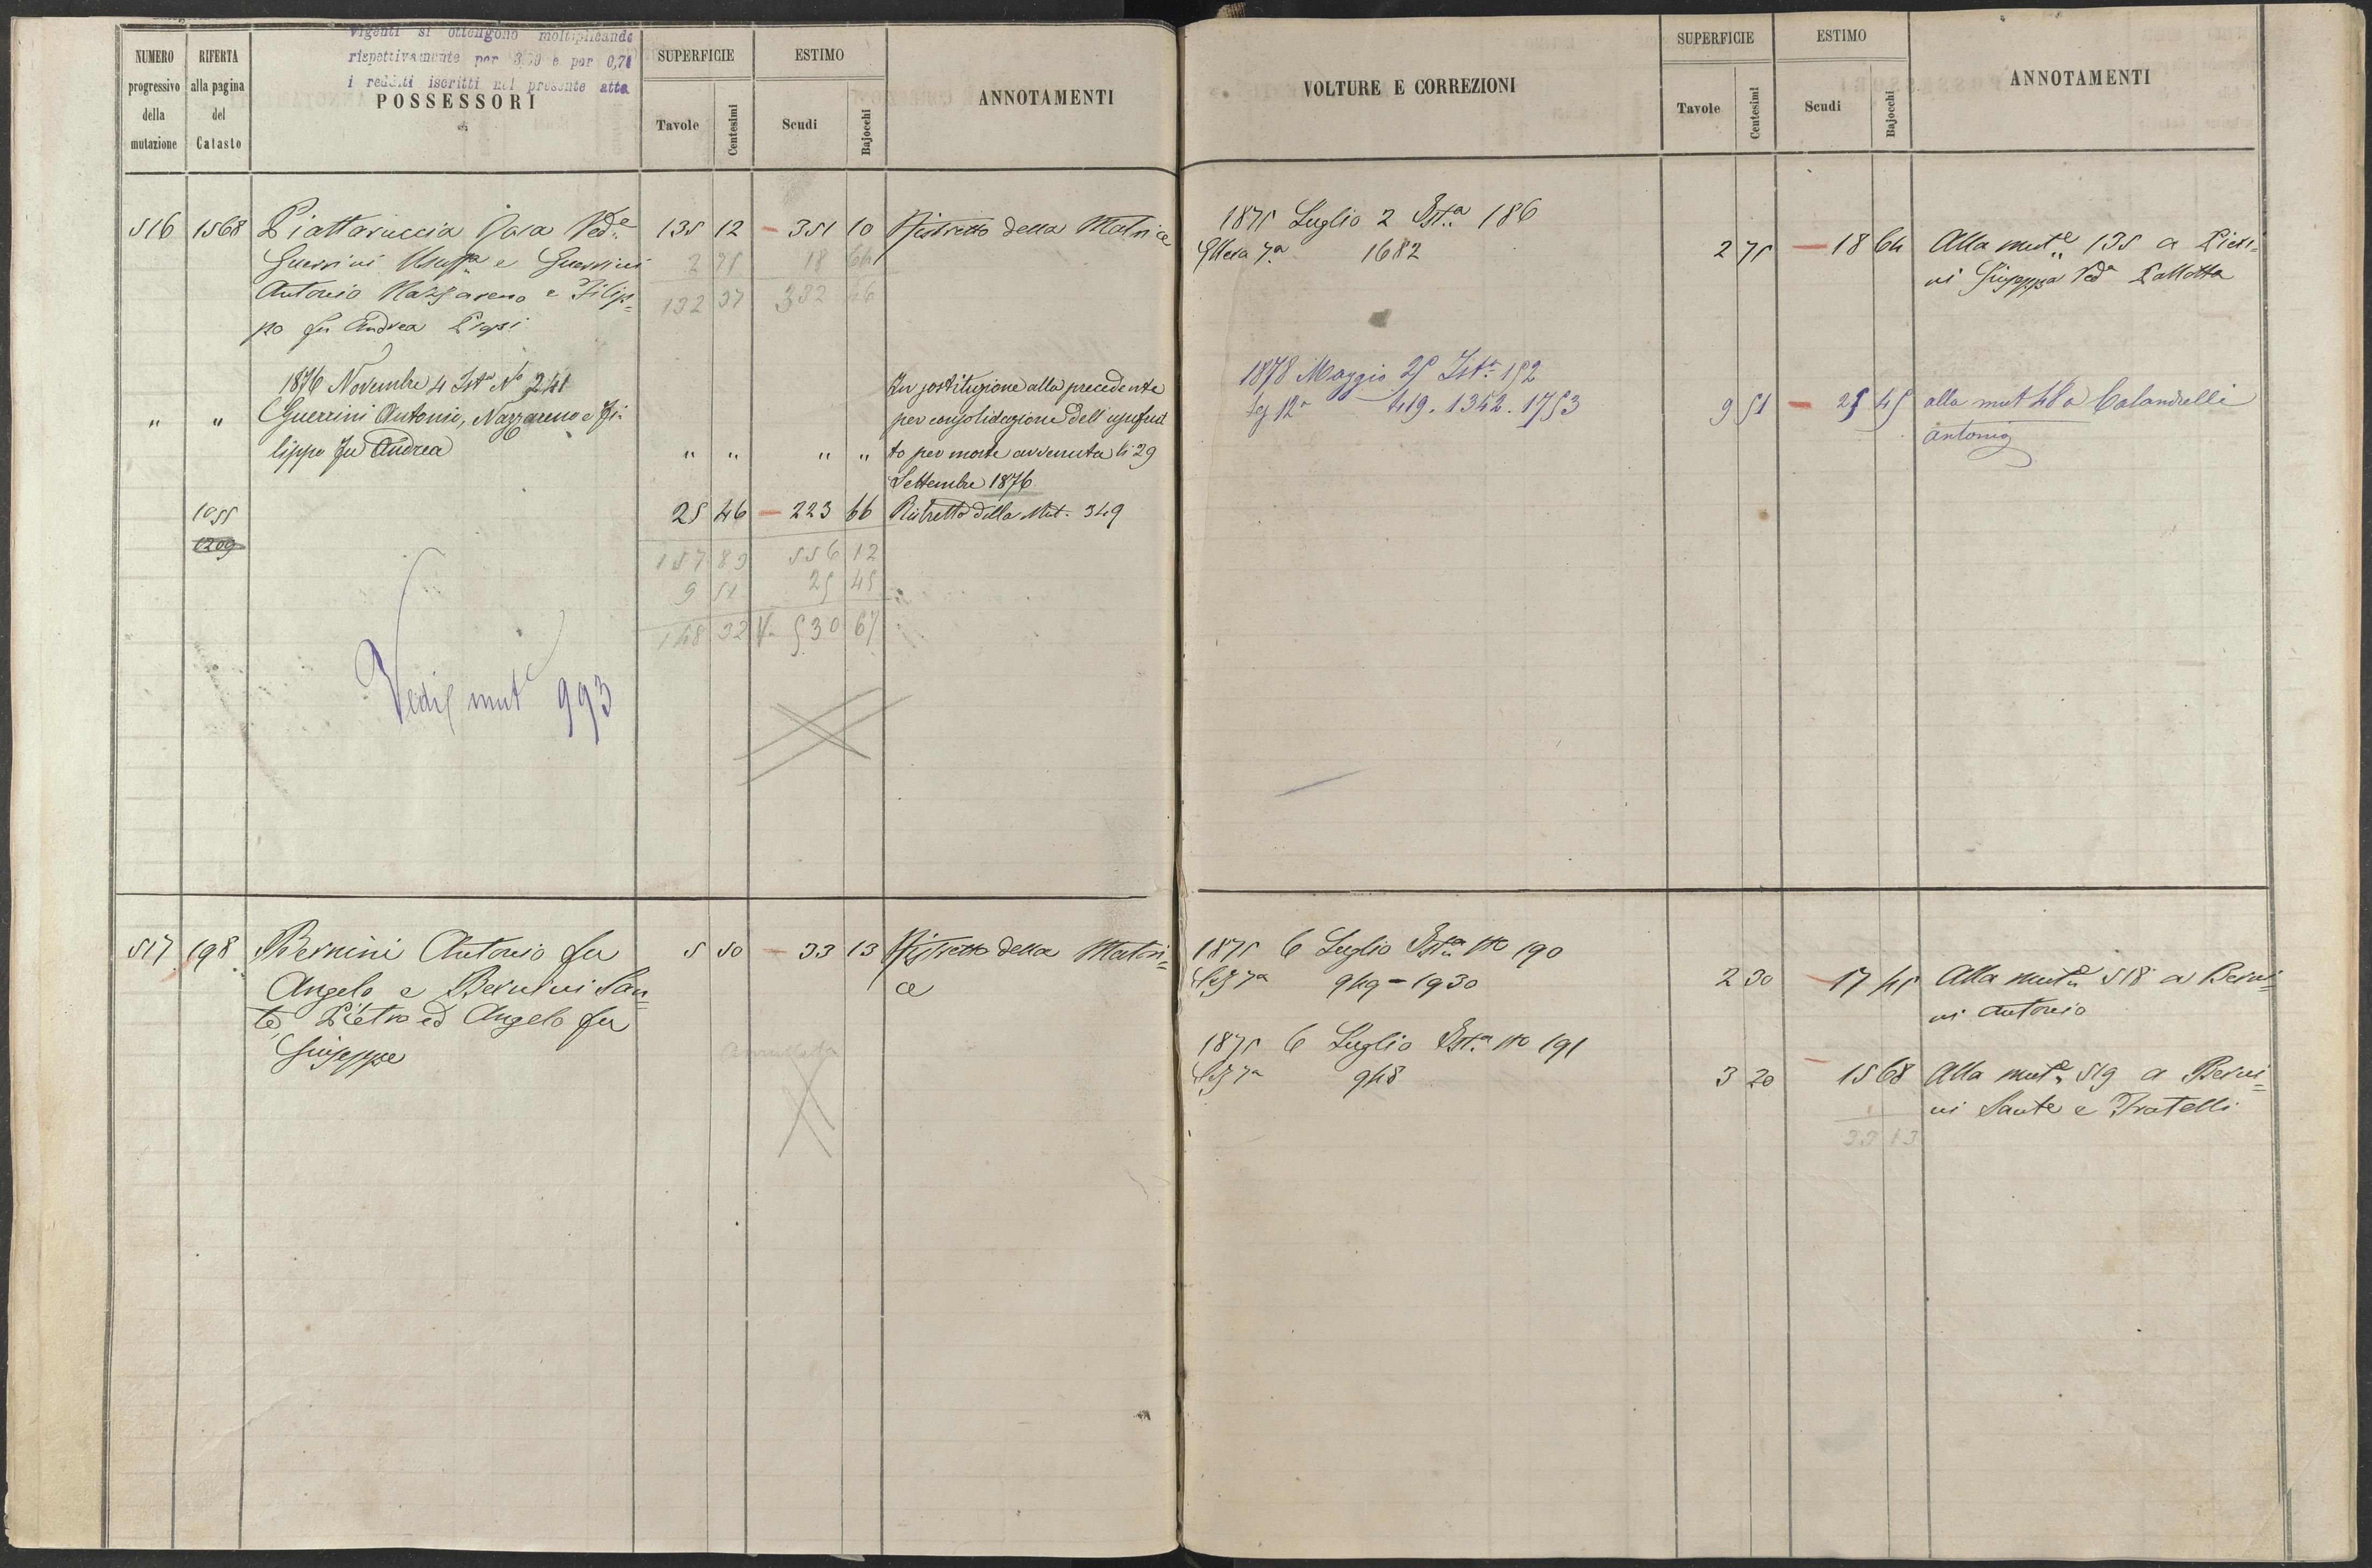 vigenti si ottengono moltiplicando
rispettivamente per 3,30 e per 0,71
i redditi iscritti nel presente atto
NUMERO progressivo della mutazione
RIFERTA alla pagina del Catasto
POSSESSORI
SUPERFICIE
Tavole Centesimi
ESTIMO
Scudi Bajocchi
ANNOTAMENTI
516 1568 Piattaruccia Rosa Ved.a 135 12 - 351 10 Ristretto della Matrice
Guerrini Usuff.a e Guerrini 2 75 18 64
Antonio Nazzareno e Filip= 132 37 332 46
po fu Andrea Propri
1876 Novembre 4 Ista N° 241 In sostituzione alla precedente
" " Guerrini Antonio, Nazzareno e Fi- per consolidazione dell'usufrut
lippo fu Andrea " " " " to per morte avvenuta li 29
Settembre 1876
1055 25 46 - 223 66 Ristretto della Mut. 349
1209
157 83 556 12
9 51 25 45
148 32 530 67
Vedi mut 993
517 198 Bernini Antonio fu 5 50 - 33 13 Ristretto della Matri=
Angelo e Bernini San= ce
te, Pietro ed Angelo fu
Giuseppe
Annullata
VOLTURE E CORREZIONI
SUPERFICIE
Tavole Centesimi
ESTIMO
Scudi Bajocchi
ANNOTAMENTI
1875 Luglio 2 Ist.a 186
7a 1682 2 75 - 18 64 Alla mut.e 135 a Pieri=
ni Giuseppa Ved.a Pallotta
1878 Maggio 25 Ist.a 152
Sez 12a 419. 1352. 1753 9 51 - 25 45 alla mut 48 a Calandrelli
Antonio
1875 6 Luglio Ist.a No 190
Sez 7a 949 - 1930 2 30 - 17 45 Alla mut.e 518 a Berni=
ni Antonio
1875 6 Luglio Ist.a No 191
Sez 7a 948 3 20 - 15 68 Alla mut.e 519 a Berni=
ni Sante e Fratelli
33 13